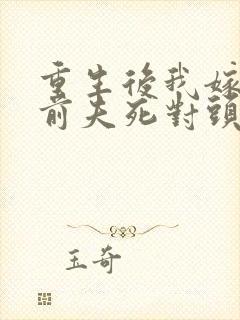 重生後我嫁
前夫死對頭
玉奇